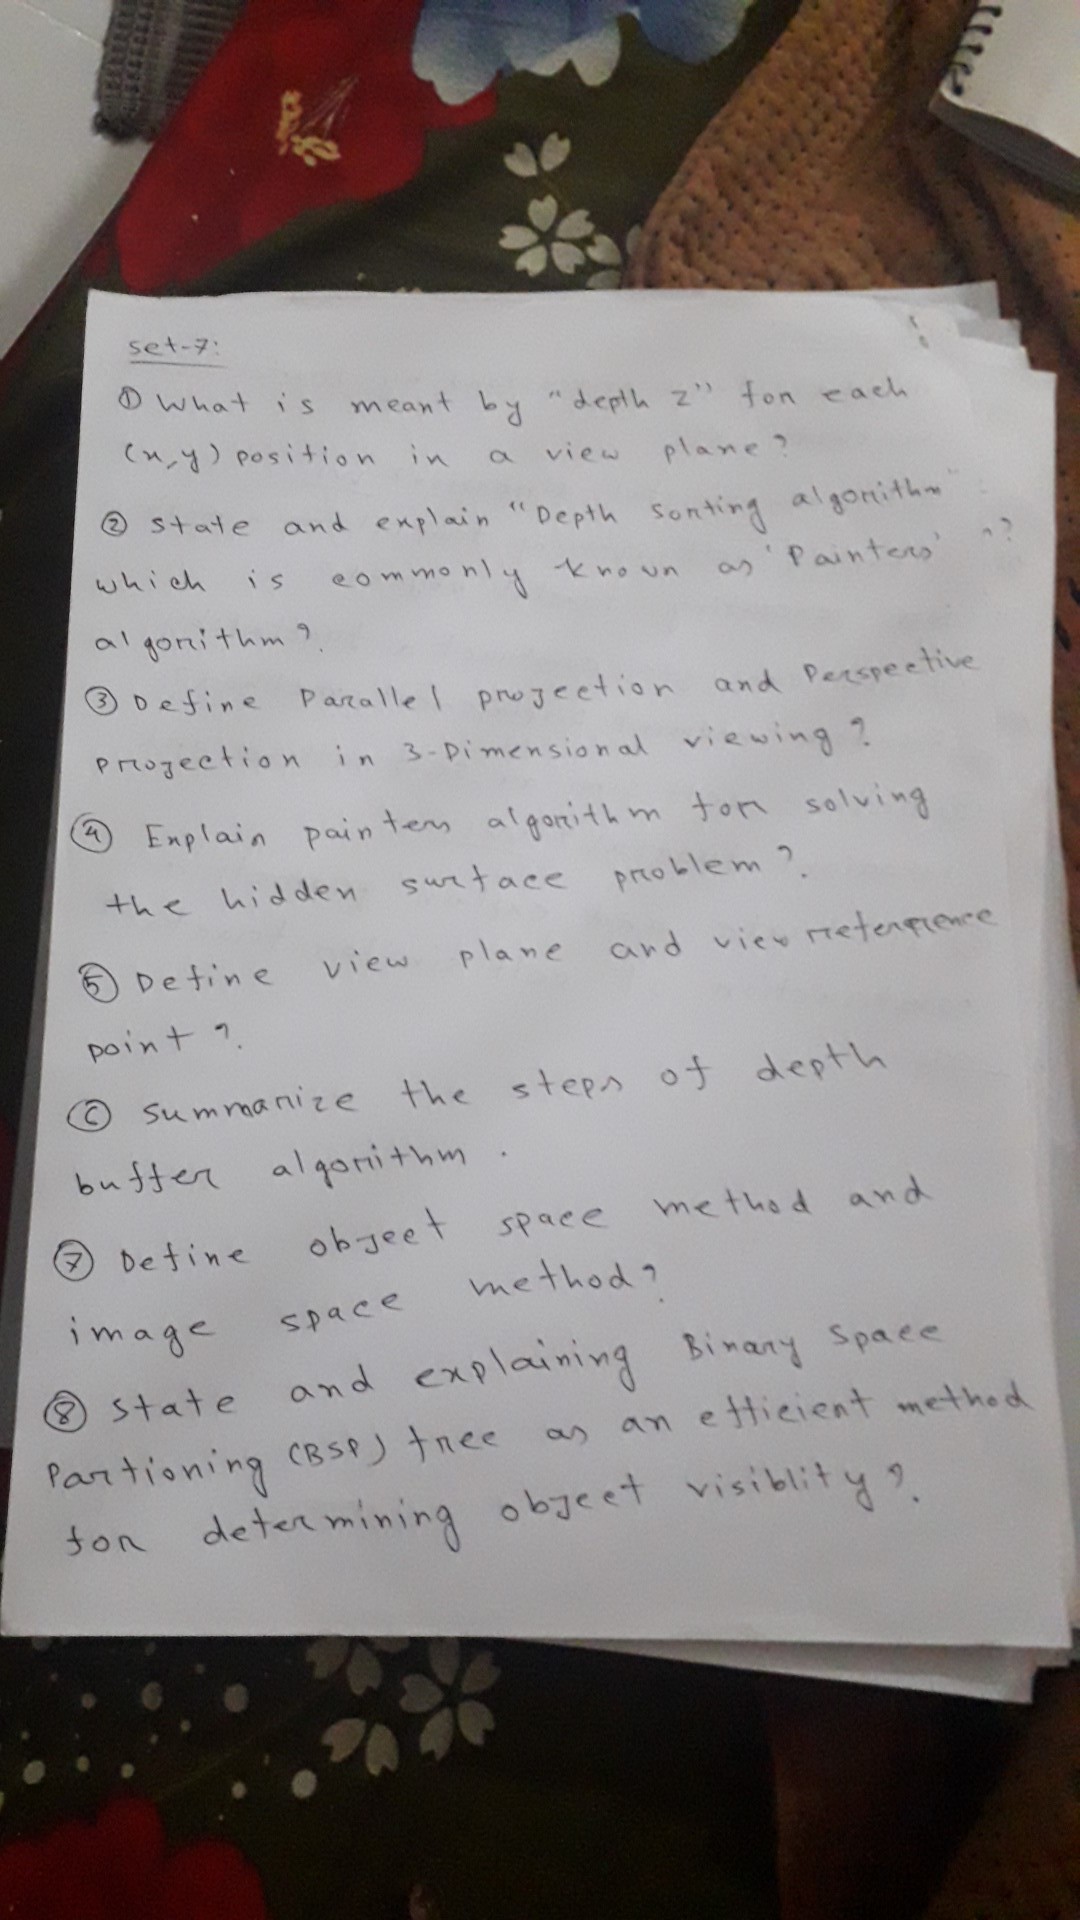 set-7:
① What is meant by "depth z" for each
(x,y) position in a view plane?
② State and explain "Depth Sorting algorithm"
which is commonly known as 'Painters'
algorithm?
③ Define Parallel projection and Perspective
projection in 3-Dimensional viewing?
④ Explain painters algorithm for solving
the hidden surface problem?
⑤ Define view plane and view reference
point?
⑥ summarize the steps of depth
buffer algorithm.
⑦ Define object space method and
image space method?
⑧ State and explaining Binary Space
Partioning (BSP) tree as an efficient method
for determining object visiblity?